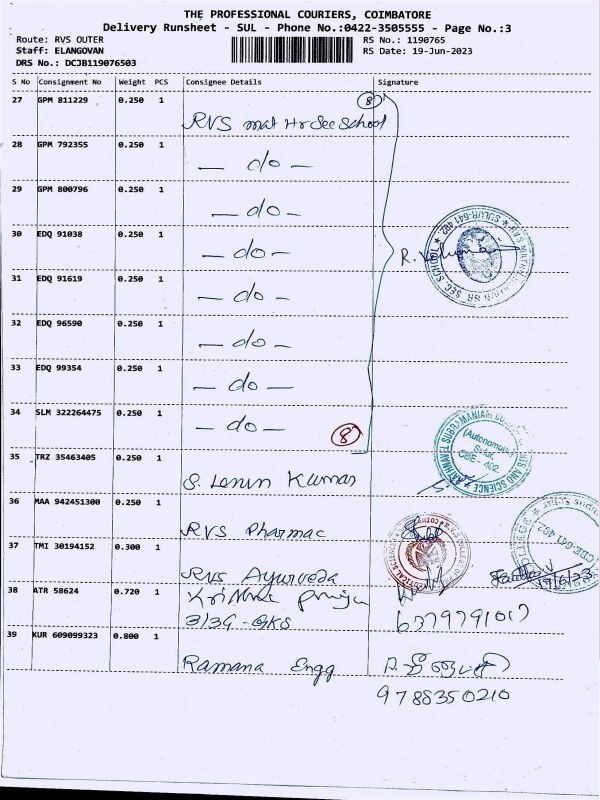 THE PROFESSIONAL COURIERS, COIMBATORE
Delivery Runsheet - SUL - Phone No.:0422-3505555 - Page No.:3
Route: RVS OUTER RS No.: 1190765
Staff: ELANGOVAN RS Date: 19-Jun-2023
DRS No.: DCJB119076503
S No Consignment No Weight PCS Consignee Details Signature
27 GPM 811229 0.250 1 8
RVS mat Hr Sec School
28 GPM 792355 0.250 1
- do -
29 GPM 800796 0.250 1
- do -
30 EDQ 91038 0.250 1
- do -
31 EDQ 91619 0.250 1
- do -
32 EDQ 96590 0.250 1
- do -
33 EDQ 99354 0.250 1
- do -
34 SLM 322264475 0.250 1
- do - 8
35 TRZ 35463405 0.250 1
S. Lenin Kumar
(Autonomous)
Sulur,
CBE - 402.
36 MAA 942451300 0.250 1
RVS Pharmac
37 TMI 30194152 0.300 1
RVS Ayurveda 19/6/23
38 ATR 58624 0.720 1
3/39-GKS 6379791017
39 KUR 609099323 0.800 1
Ramana Engg
9788350210